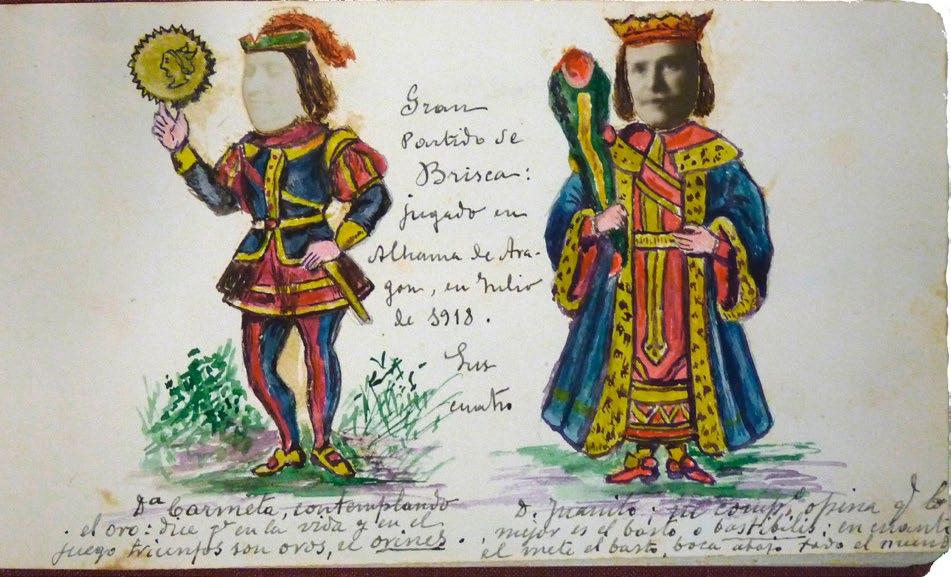 Gran
Partido de
Brisca:
jugado en
Alhama de Ara-
gon, en Julio
de 1918.
Sus
cuatro
Dª Carmeta, contemplando
el oro: dice qe en la vida y en el
juego triunfos son oros, el orines.
D. Juanito: su compº opina qe lo
mejor es el basto o bastibilis: en cuanto
el mete el basto, boca abajo todo el mund